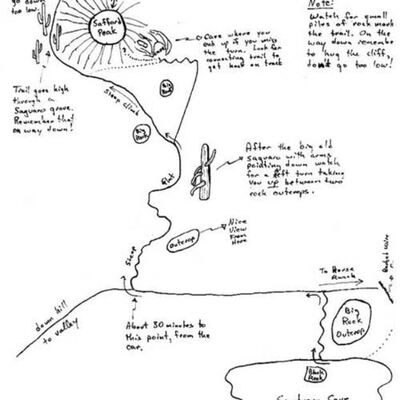 go down
too low.
Safford
Peak
Cave where you
end up if you miss
the turn. Look for
connecting trail to
get back on track
Note:
Watch for small
piles of rock mark
the trail. On the
way down remember
to hug the cliff,
don't go too low!
Trail goes high
through a
Saguaro grove.
Remember that
on way down!
Steep climb
Big
Rock
Big
Rock
After the big old
saguaro with arms
pointing down watch
for a left turn taking
you up between two
rock outcrops.
Nice
View
From
Here
Outcrop
Steep
To Horse
Ranch
down hill
to valley
About 30 minutes to
this point, from the
car.
Big
Rock
Outcrop